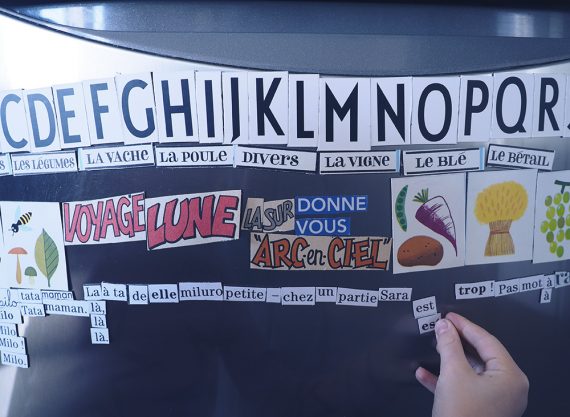 CDEFGHIJKLMNOPQR
LES LÉGUMES LA VACHE LA POULE DIVERS LA VIGNE LE BLÉ LE BÉTAIL
VOYAGE LUNE LA SUR DONNE
VOUS
"ARC-en-CIEL"
tata maman La à ta de elle miluro petite - chez un partie Sara est trop ! Pas mot à
Milo Tata maman. là, es à
Milo là.
Milo.